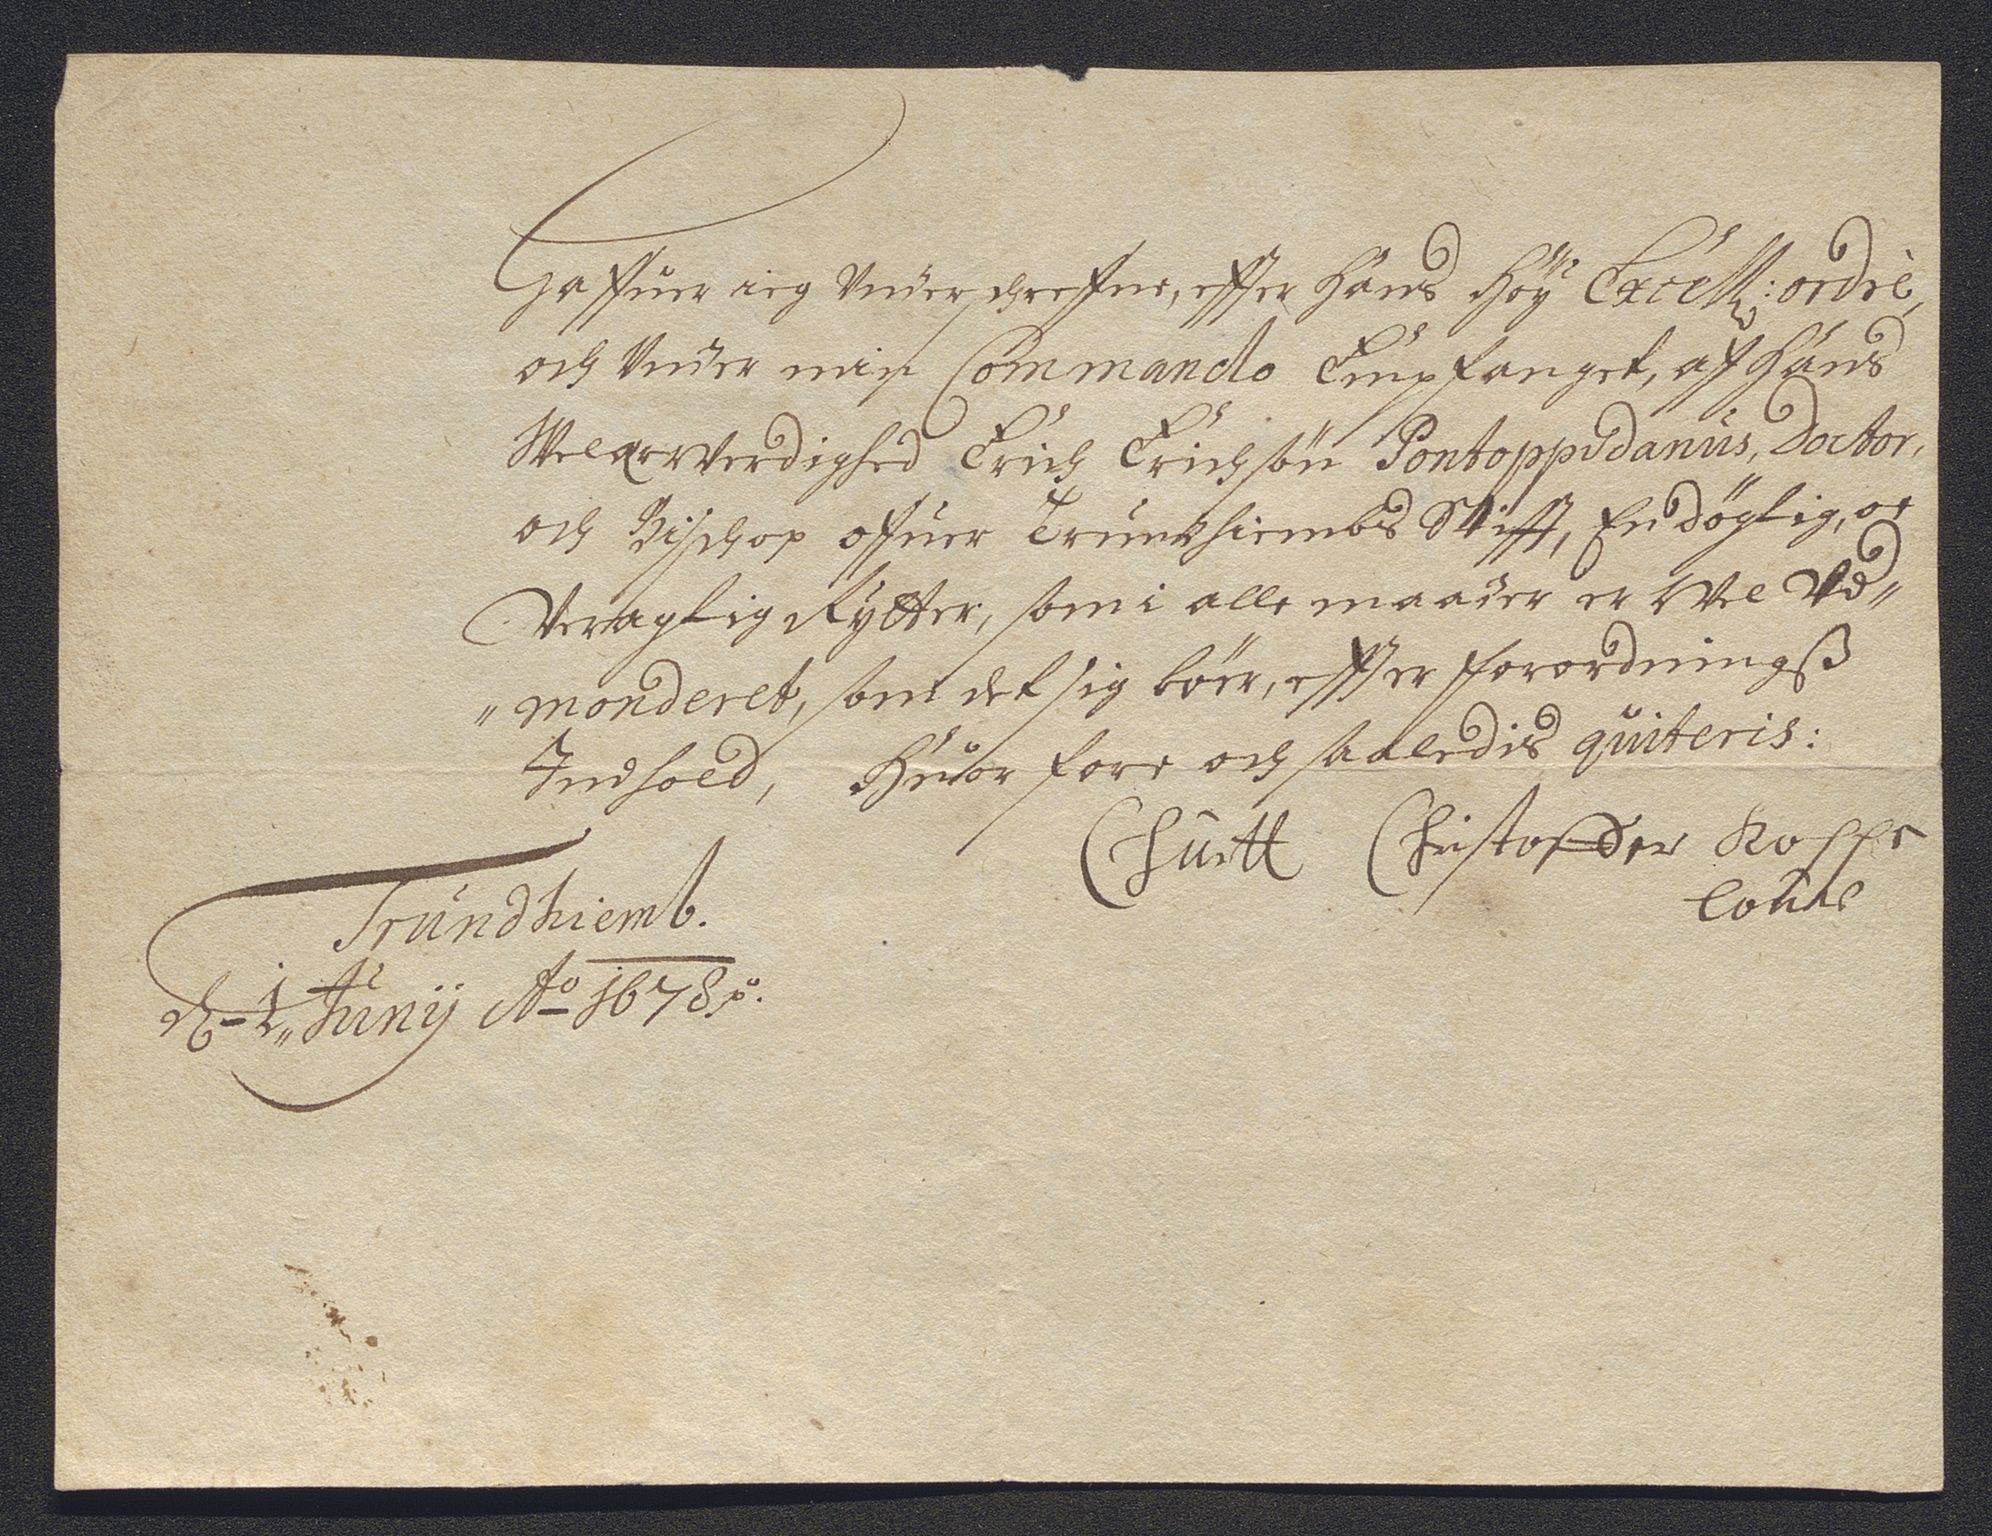 Haffuer ieg Underschreffne, effter Hans Höy Excell: ordre,
och Under min Commando Empfanget, aff Hans
Welærverdighed Erich Erichsön Pontoppidanus, Doctor,
och Bischop offuer Trundhiembs Stifft, En dögtig, oc
Veragtig Rytter, som i alle maader er Vel Ud„
„monderet, som det sig böer, effter forordningß
Indhold, Huor fore och saaledis quiteris:
Christoffer
Trundhiemb.
d. 1„ Junij Ao 1678.